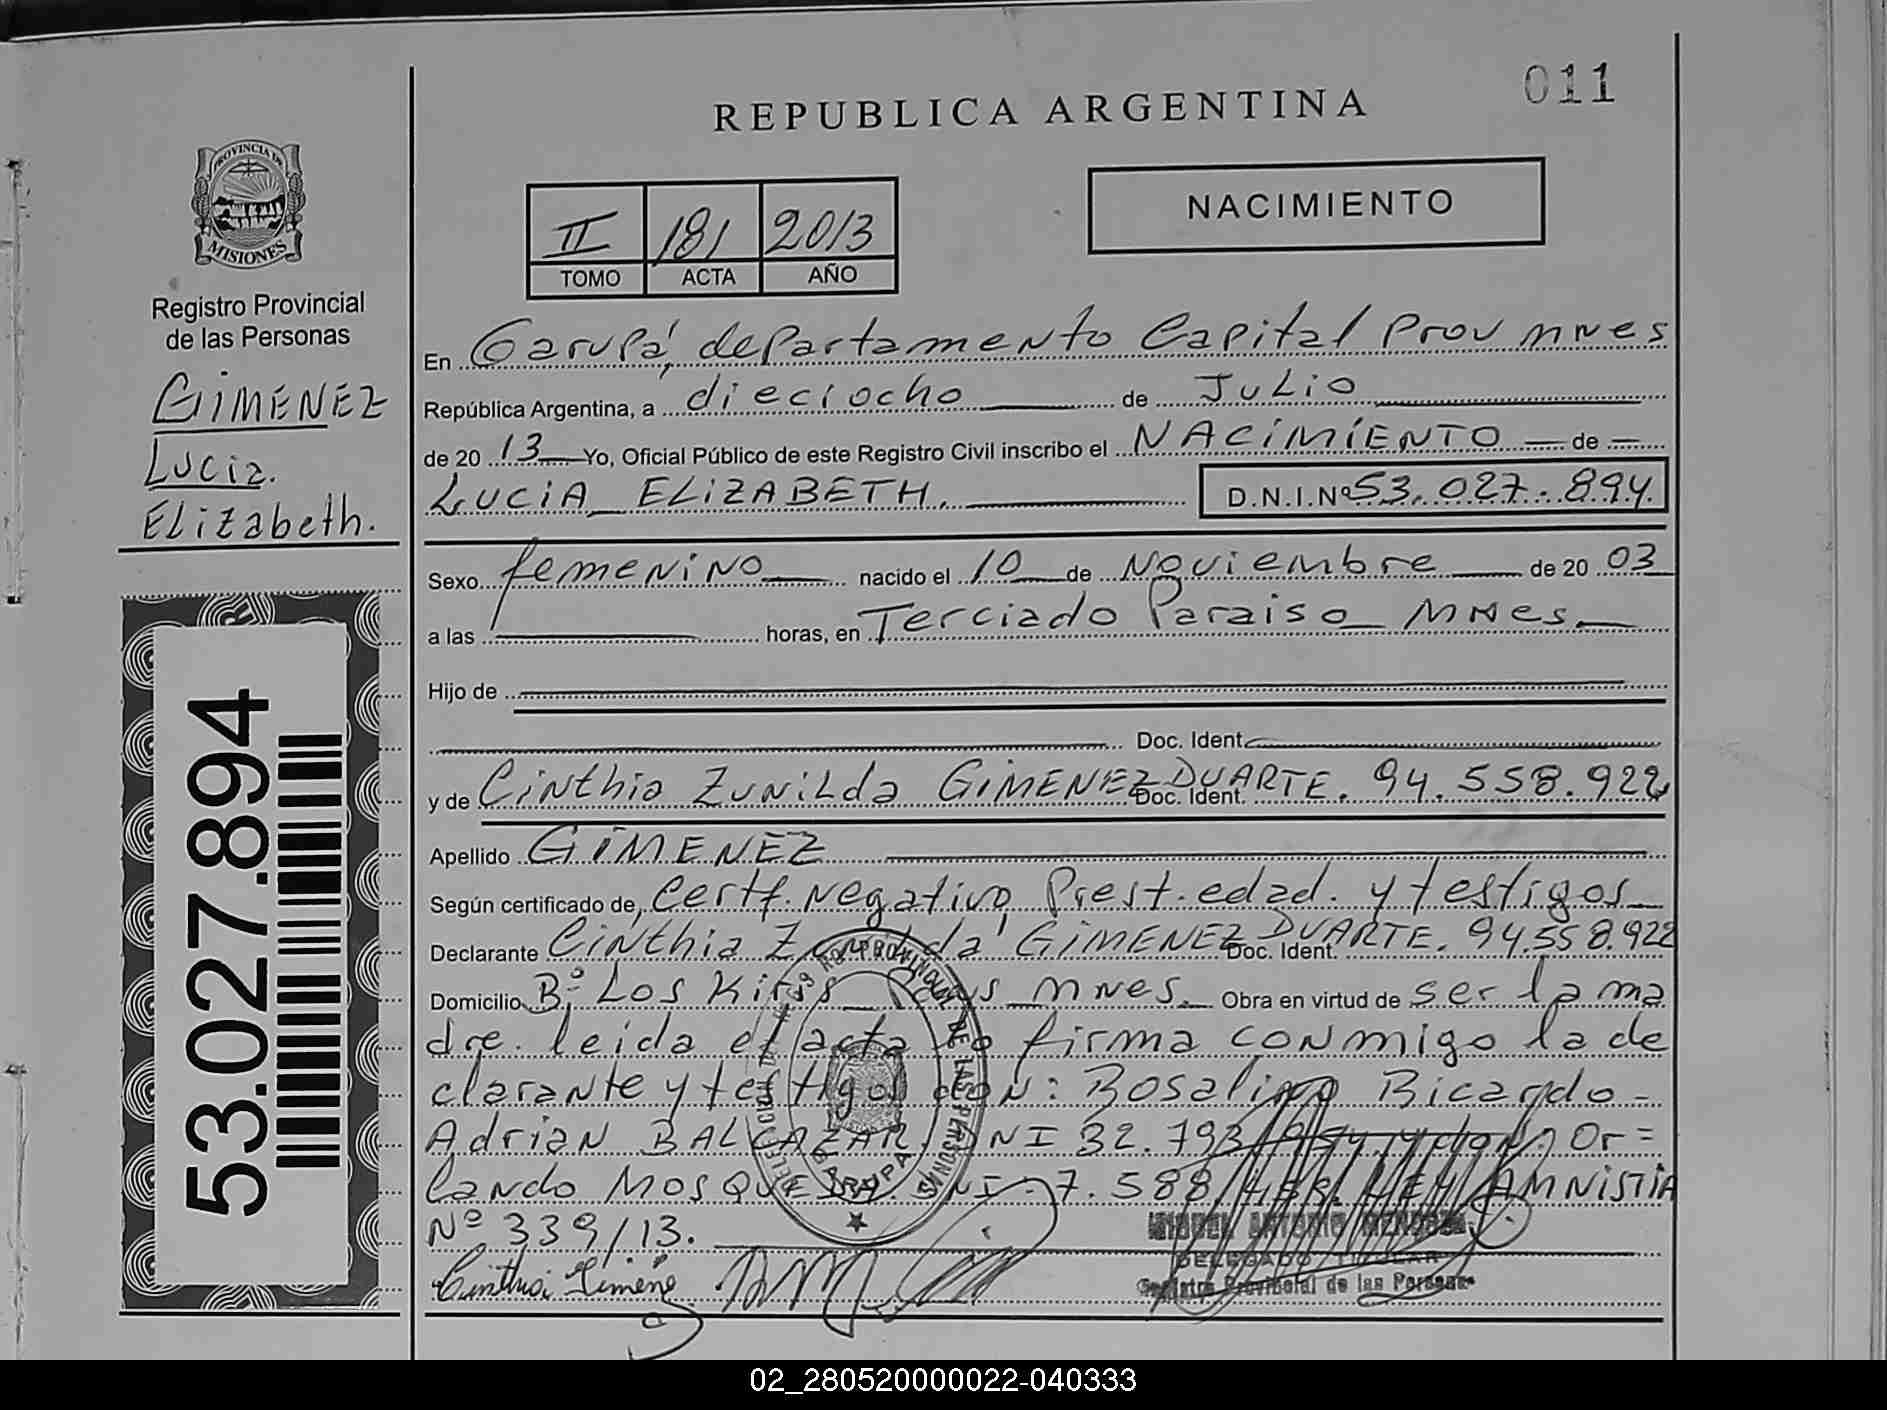 011
REPUBLICA ARGENTINA
NACIMIENTO
II 181 2013
TOMO ACTA AÑO
PROVINCIA DE
MISIONES
Registro Provincial
de las Personas
GIMENEZ
Lucia.
Elizabeth.
53.027.894
En Garupá, departamento Capital Prov mnes
República Argentina, a dieciocho de Julio
de 20 13 Yo, Oficial Público de este Registro Civil inscribo el NACIMIENTO de
LUCIA ELIZABETH. D.N.I.Nº 53.027.894.
Sexo femenino nacido el 10 de Noviembre de 20 03
a las horas, en Terciado Paraiso mnes.
Hijo de
Doc. Ident.
y de Cinthia Zunilda GIMENEZ DUARTE. Doc. Ident. 94.558.922
Apellido GIMENEZ
Según certificado de, Certf. Negativo, Prest. edad. y testigos
Declarante Cinthia Zunilda GIMENEZ DUARTE. Doc. Ident. 94.558.922
Domicilio Bº: Los Kiris mnes. Obra en virtud de ser la ma
dre. leida el acta firma conmigo la de
clarante y testigos don: Rosalino Ricardo =
Adrian BALCAZAR. DNI 32.793 y don: Or=
lando MOSQUEIRA. DNI: 7.588 LEY AMNISTIA
Nº 339/13.
Cinthia Gimenez
MIGUEL ANTONIO
DELEGADO TITULAR
Registro Provincial de las Personas
PROVINCIAL DE LAS PERSONAS
GARUPA
02_280520000022-040333